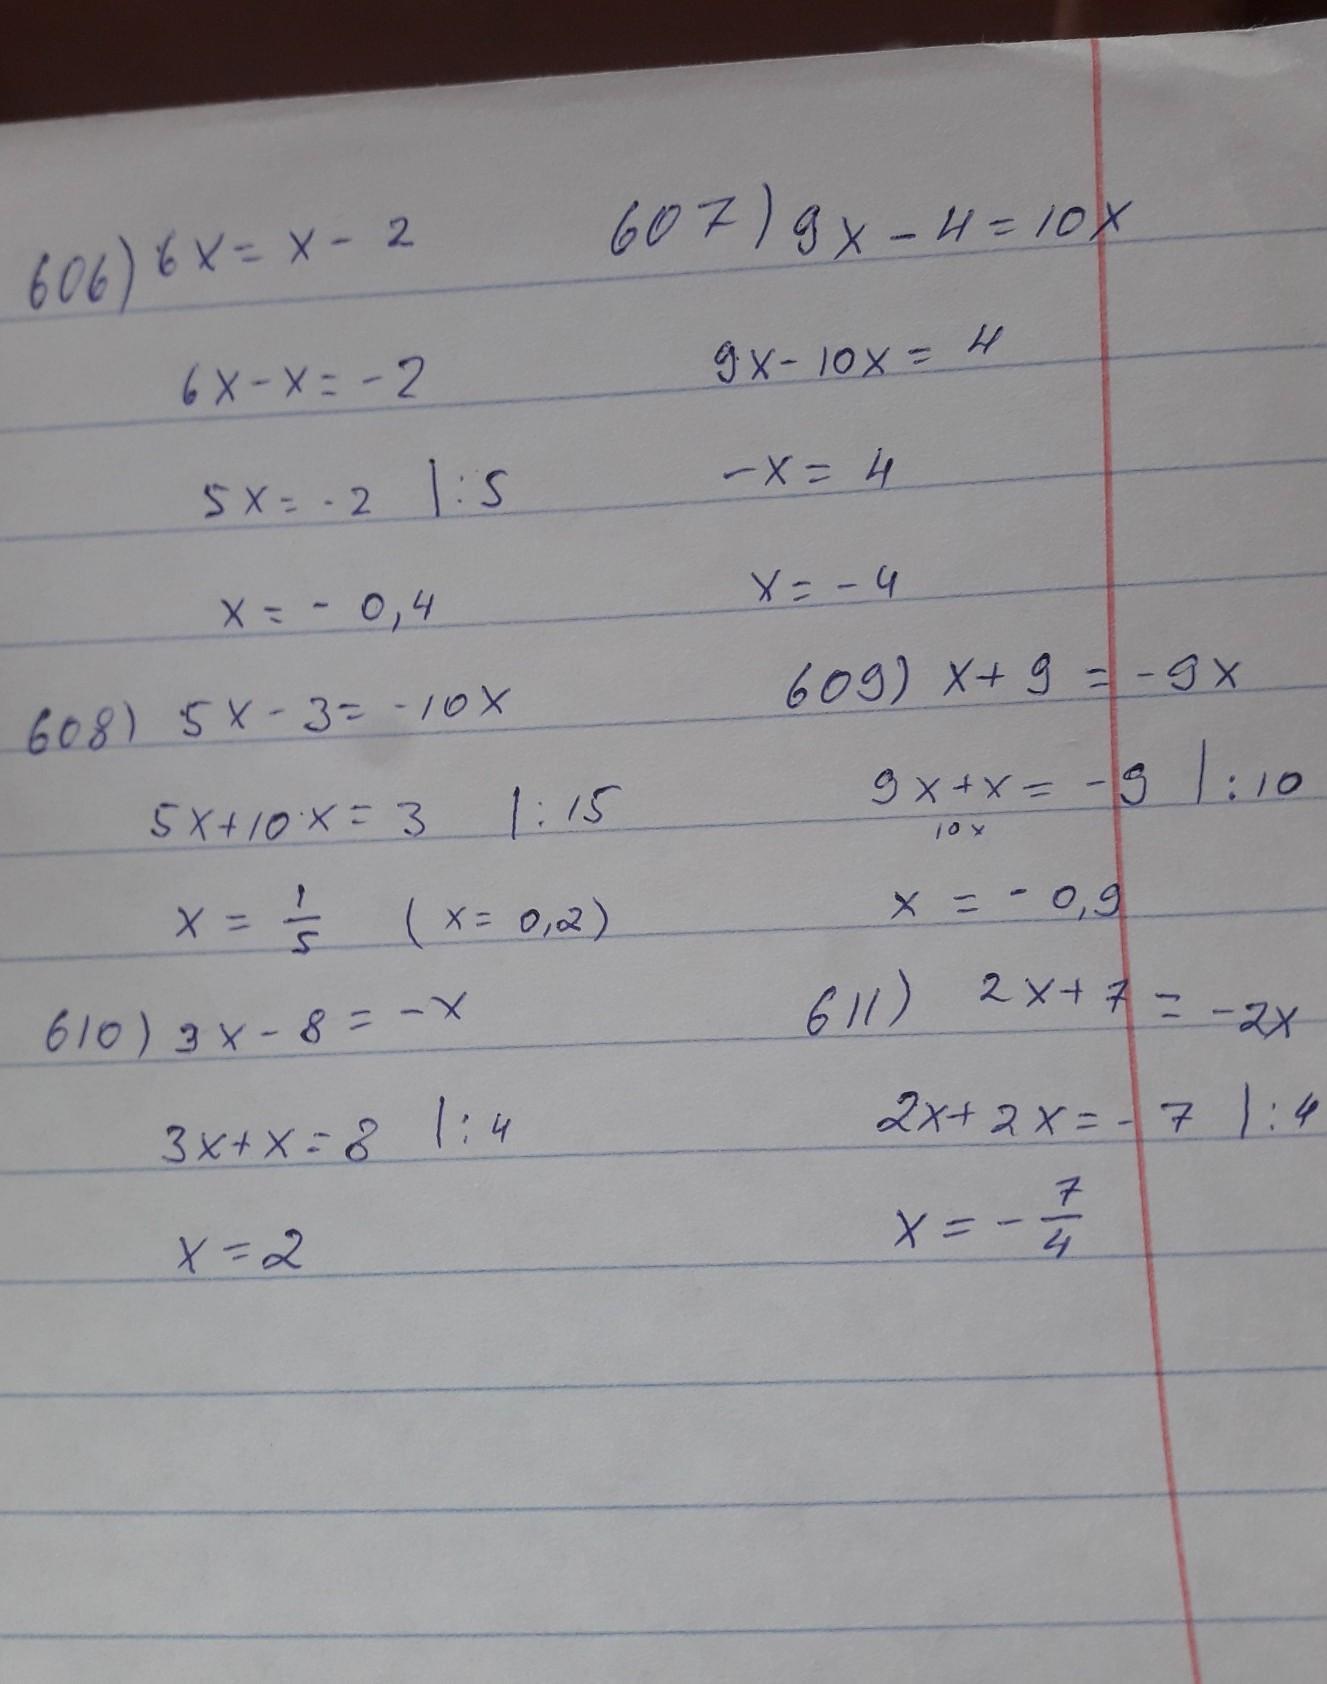 606) 6x = x - 2
6x - x = - 2
5x = - 2 |: 5
x = - 0,4
607) 9x - 4 = 10x
9x - 10x = 4
-x = 4
x = - 4
608) 5x - 3 = -10x
5x + 10x = 3 |: 15
x = 1/5 (x = 0,2)
609) x + 9 = -9x
9x + x = -9 |: 10
10x
x = - 0,9
610) 3x - 8 = -x
3x + x = 8 |: 4
x = 2
611) 2x + 7 = -2x
2x + 2x = - 7 |: 4
x = - 7/4